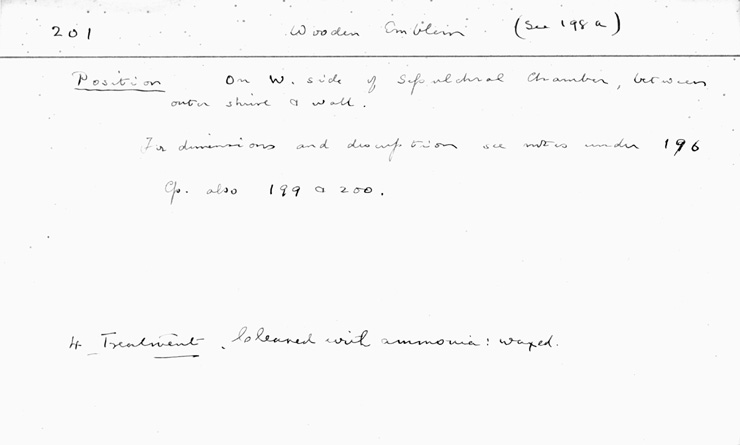 201 Wooden Emblem (See 198 a)
Position On W. side of Sepulchral Chamber, between
outer shrine & wall.
For dimensions and description see notes under 196
Cp. also 199 & 200.
4 Treatment. Cleaned with ammonia: waxed.